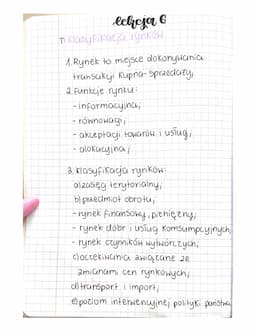 Lekcja 6
T: Klasyfikacja rynków
1. Rynek to miejsce dokonywania
transakcji kupna-sprzedaży,
2. Funkcje rynku:
- informacyjna,
- równowagi,
- akceptacji towarów i usług,
- alokacyjna,
3. Klasyfikacja rynków:
a) zasięg terytorialny,
b) przedmiot obrotu,
- rynek finansowy, pieniężny,
- rynek dóbr i usług komsumpcyjnych,
- rynek czynników wytwórczych,
c) oczekiwania związane ze
zmianami cen rynkowych,
d) transport i import,
e) poziom interwencyjnej polityki państwa,